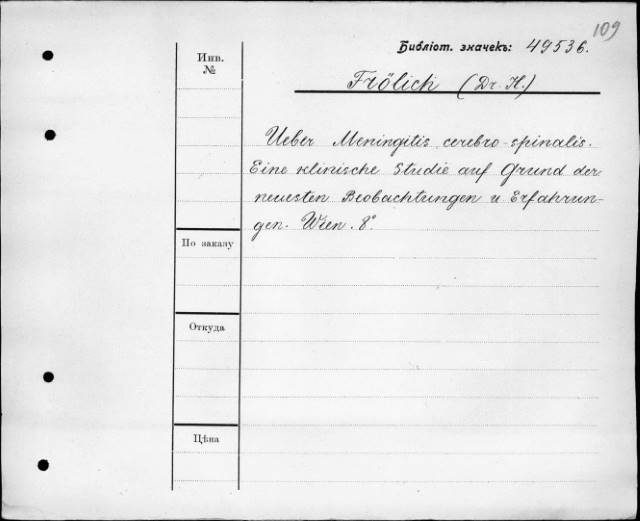 109
Библіот. значекъ: 49536.
Инв.
№
Frölich (Dr. H.)
Ueber Meningitis cerebro-spinalis.
Eine klinische Studie auf Grund der
neuesten Beobachtungen u Erfahrun-
gen. Wien. 8°
По заказу
Откуда
Цѣна